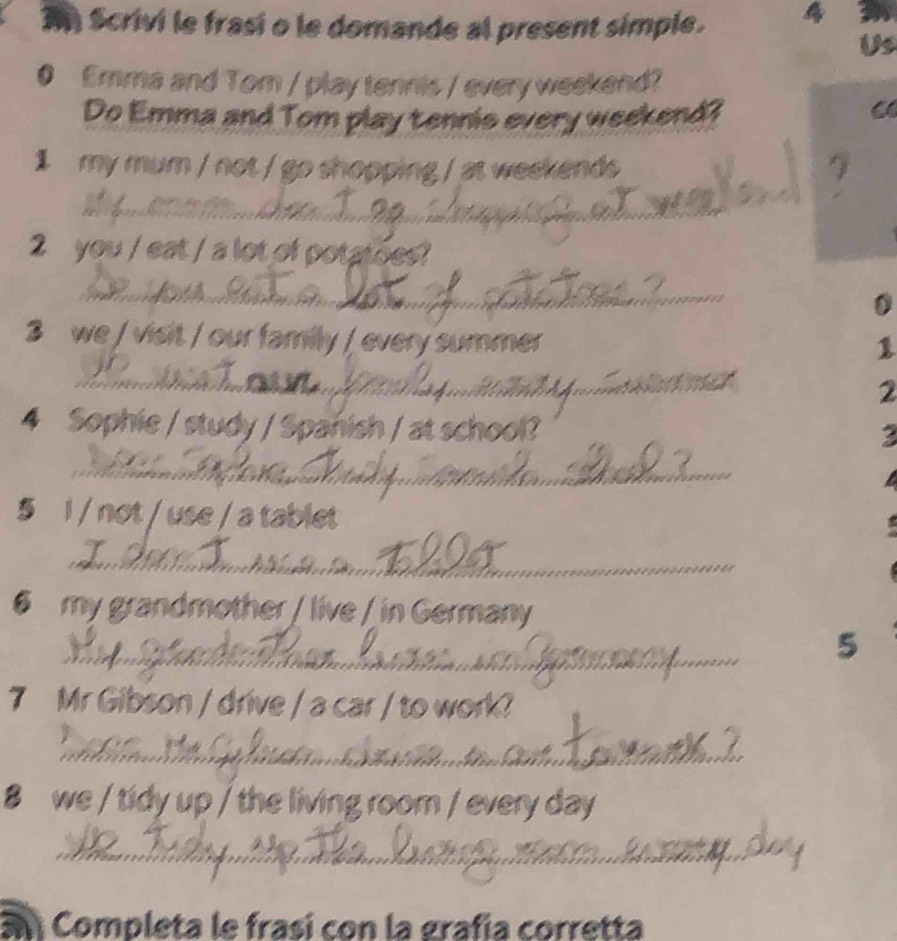 Scrivi le frasi o le domande al present simple.
4
Us
0 Emma and Tom / play tennis / every weekend?
Do Emma and Tom play tennis every weekend?
1 my mum / not / go shopping / at weekends
My mum don't go shopping at weekend ?
2 you / eat / a lot of potatoes?
Do you eat a lot of potatoes ?
0
3 we / visit / our family / every summer
1
We visit our family every summer
2
4 Sophie / study / Spanish / at school?
3
Does Sophie study at school ?
5 I / not / use / a tablet
I don't use a tablet
6 my grandmother / live / in Germany
My lives in Germany
5
7 Mr Gibson / drive / a car / to work?
Does Mr drive a car to work ?
8 we / tidy up / the living room / every day
We tidy up the living room every day
Completa le frasi con la grafia corretta